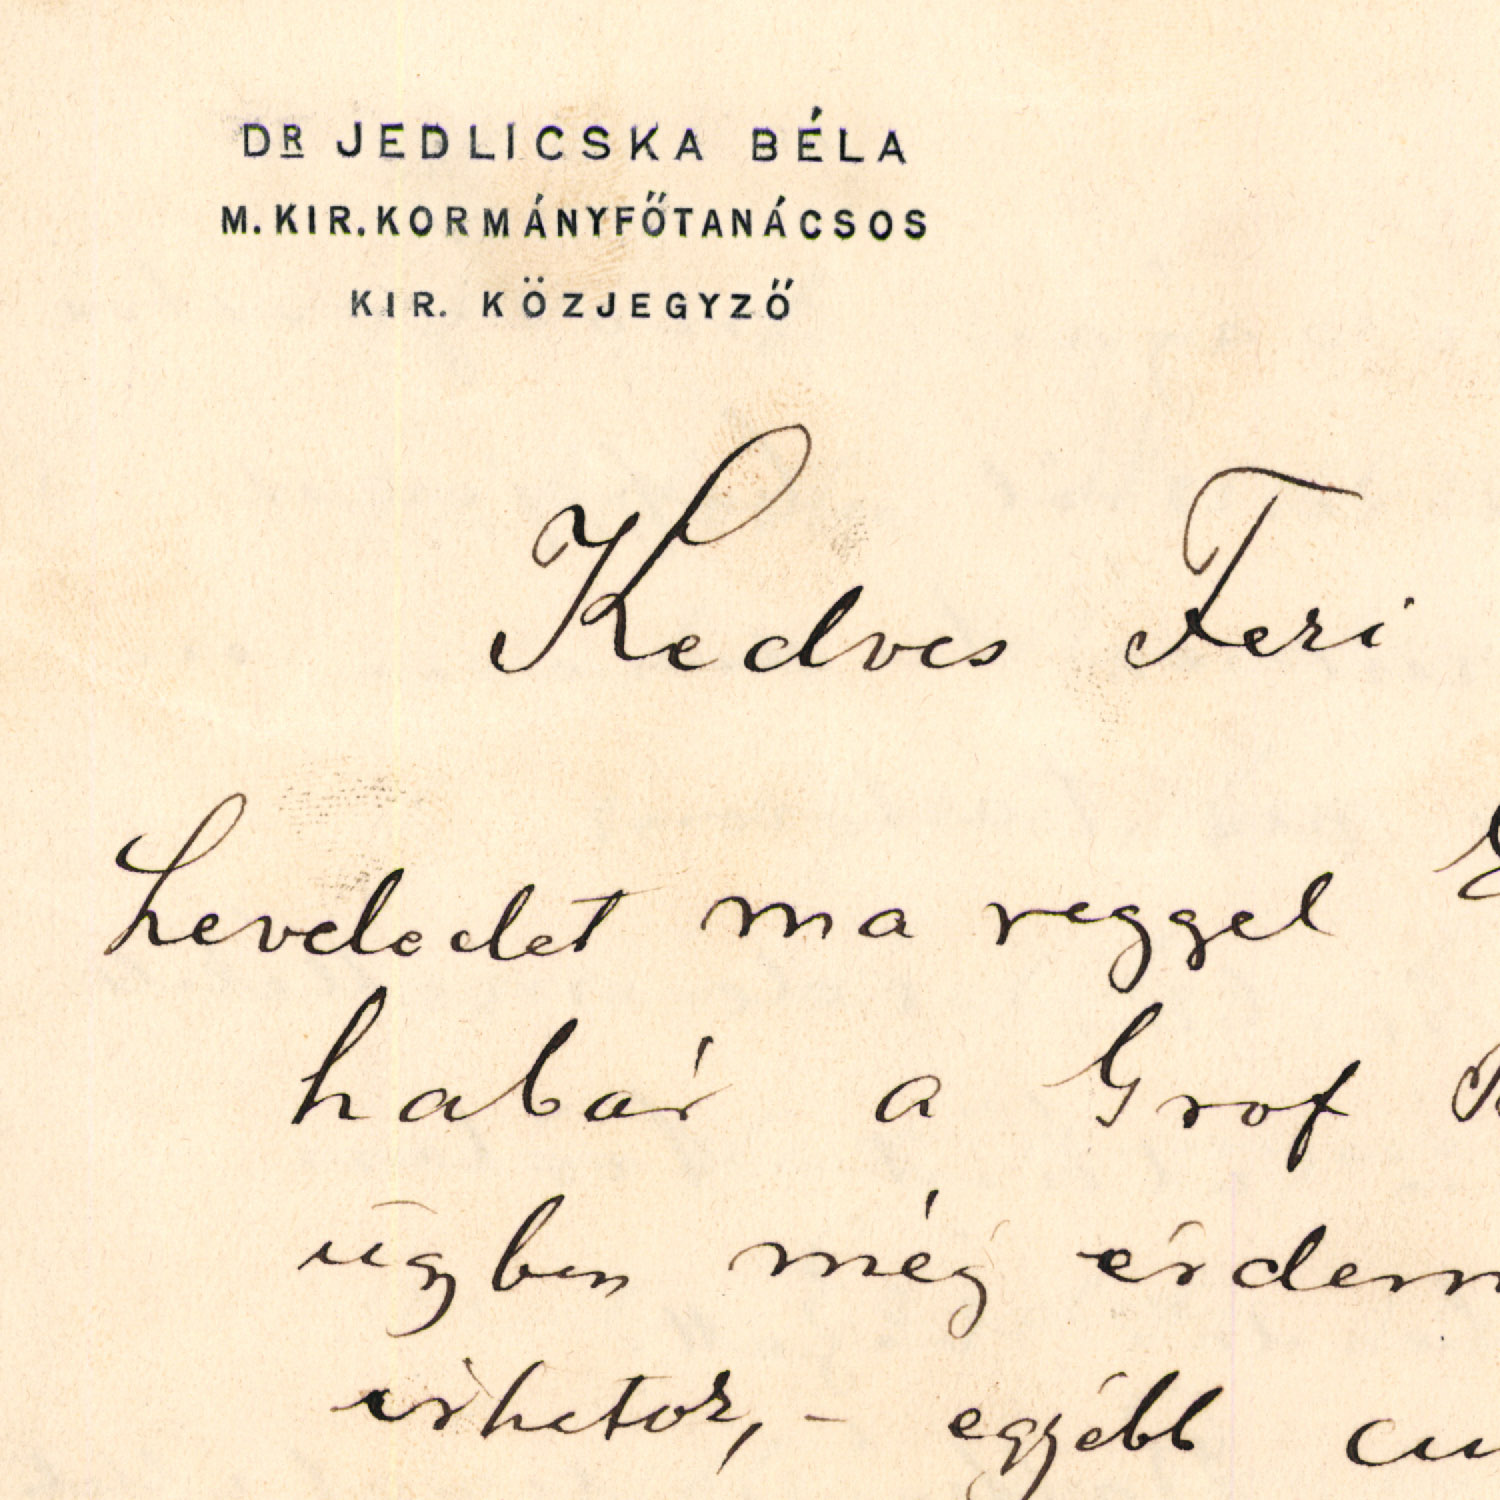 DR JEDLICSKA BÉLA
M. KIR. KORMÁNYFŐTANÁCSOS
KIR. KÖZJEGYZŐ
Kedves Feri
Leveledet ma reggel
habár a Grof
ügyben még érdem
irhatok, - egyébb